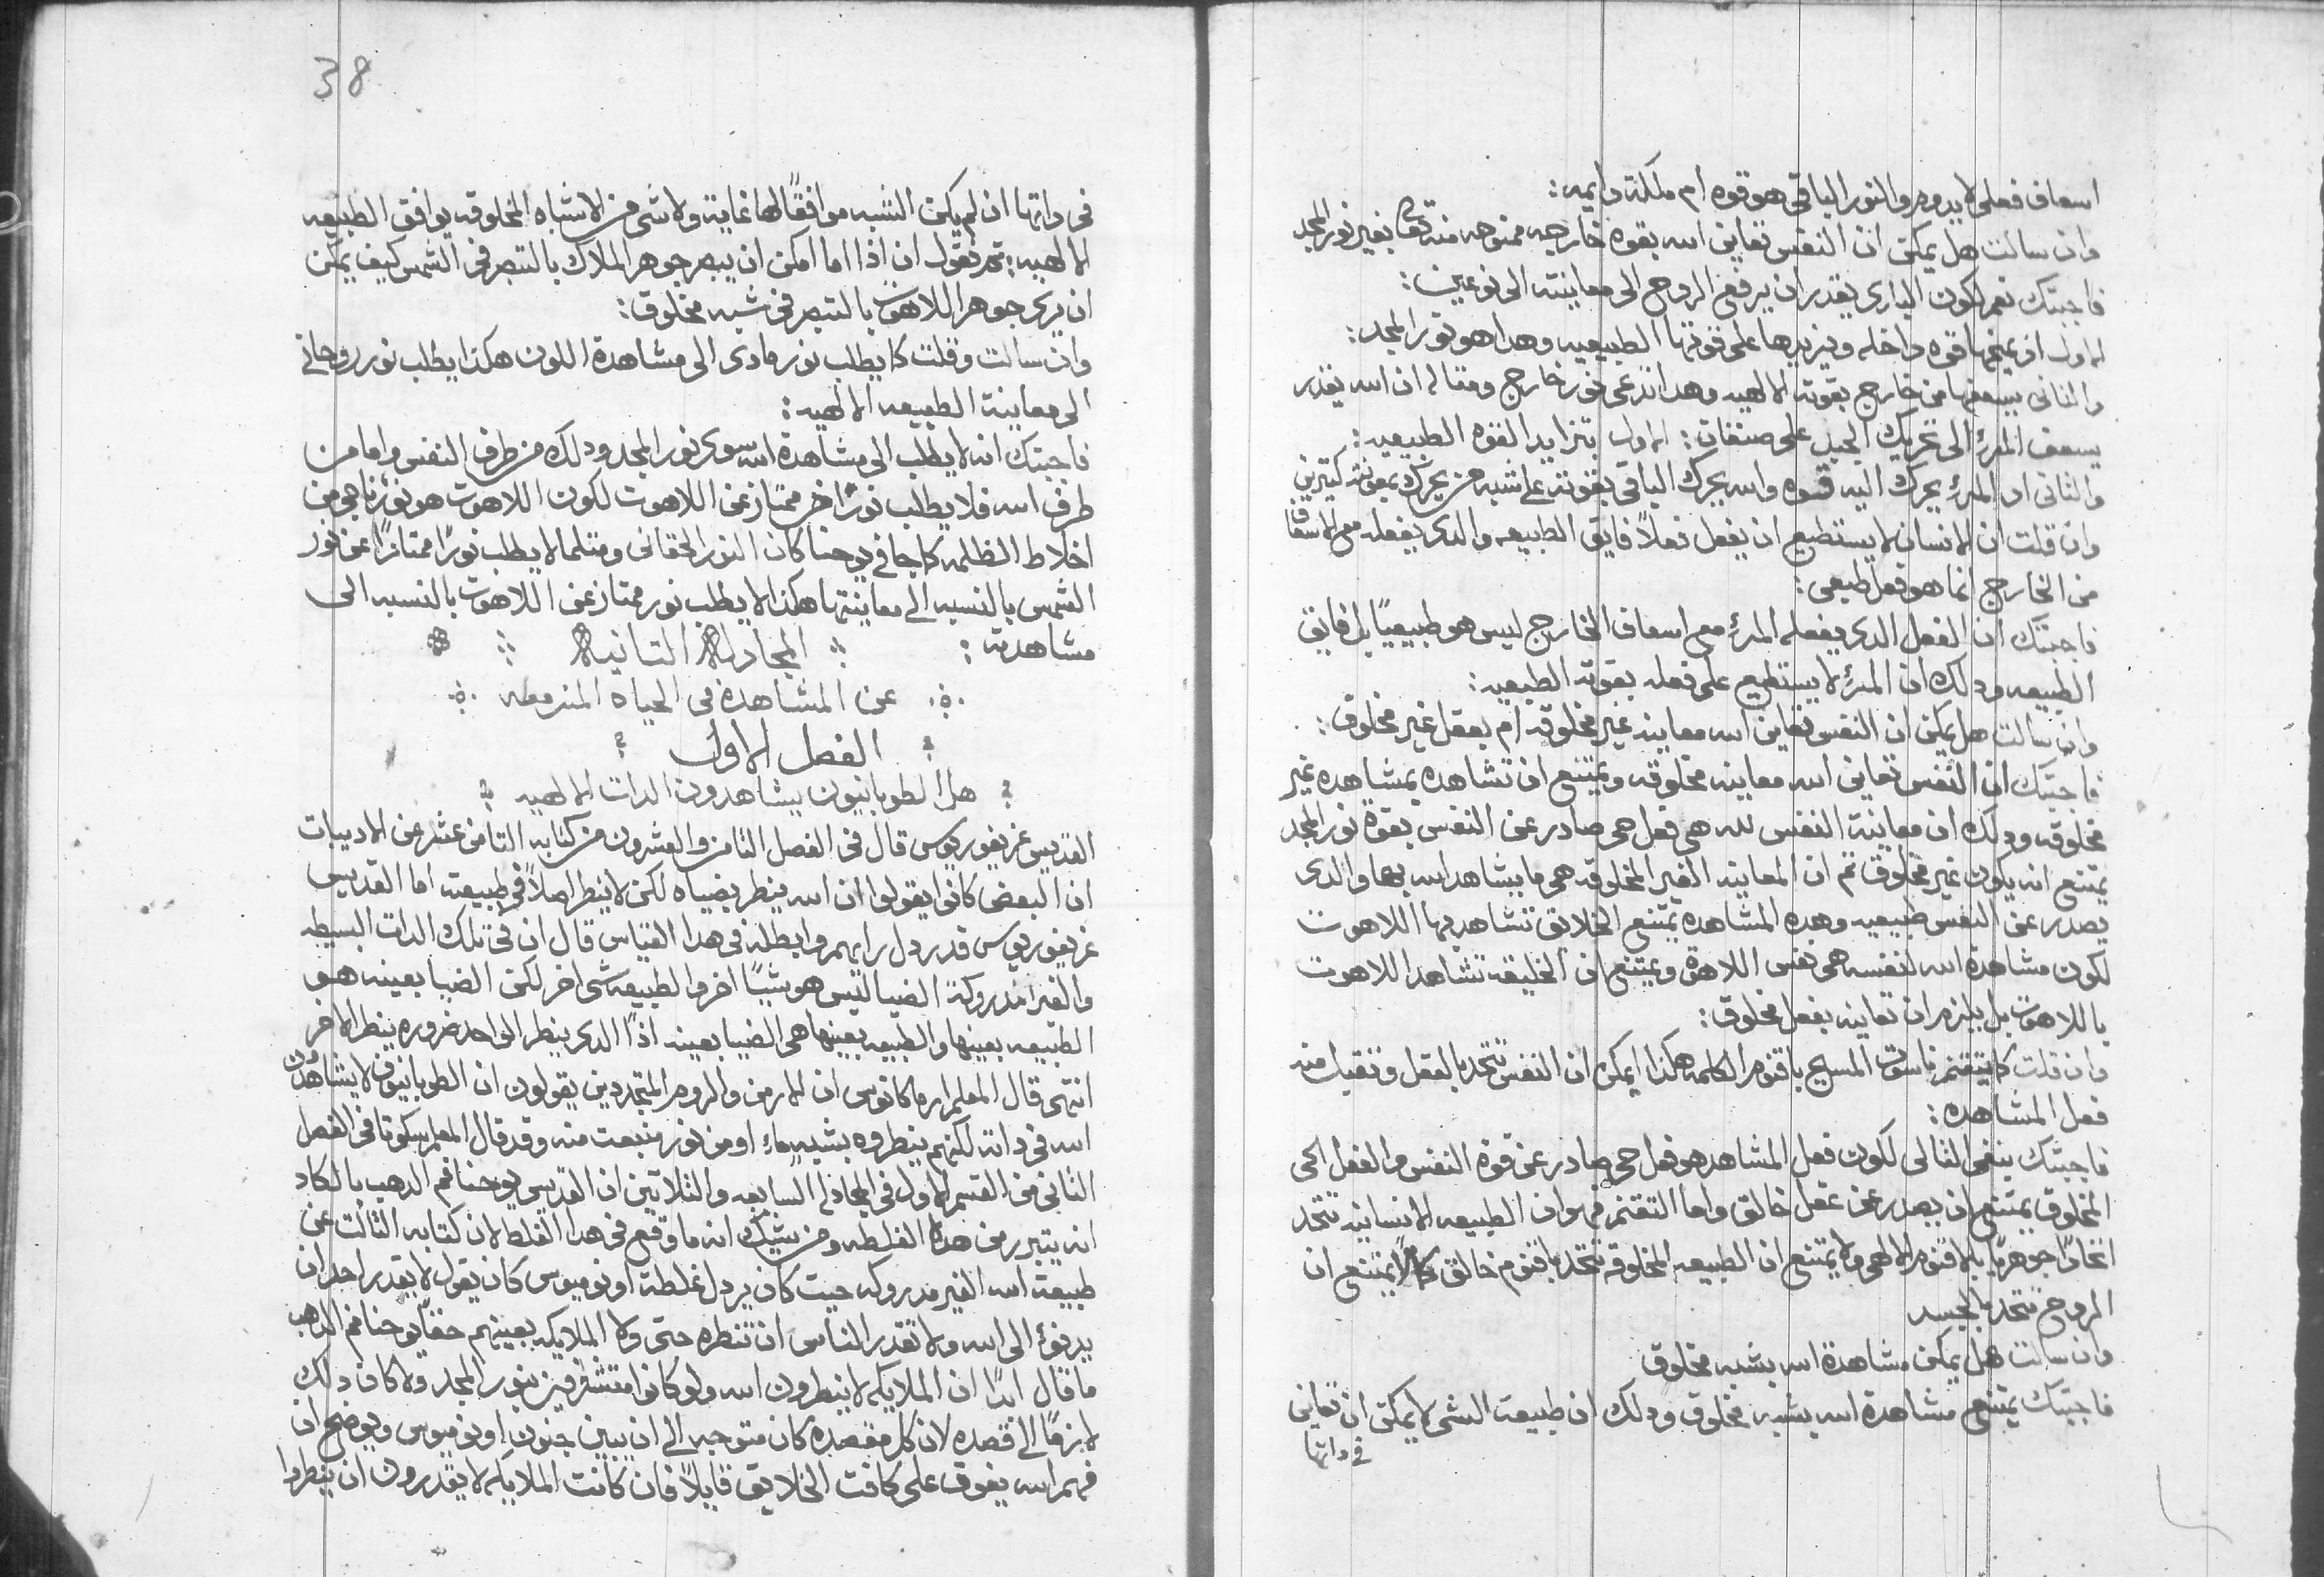 اسعاف فعلي لا يدوم والنور الباقي هو قوه ام ملكة دايمه:
وان سالت هل يمكن ان النفس تعاين الله بقوه خارجيه ممنوحه منه تعا بغير نور المجد
فاجبتك نعم لكون الباري يقدر ان يرفع الروح الى معاينته الى نوعين:
الاول ان يمنحها قوه داخله ويزيدها على قوتها الطبيعيه وهدا هو نور المجد:
والتاني يسعفها من خارج بقوته الالهيه وهدا تدعى نور خارج ومتاله ان الله يقدر
يسعف المرء الى تحريك الجبل على صنفان: الاول بتزايد القوه الطبيعيه:
والتاني ان المرء يحرك اليه قوه والله يحرك الباقي بقوته على شبه من يحرك بمعونة كتيرين
وان قلت ان الانسان لا يستطيع ان يفعل فعلاً فايق الطبيعه والدى يفعله مع الاسعاف
من الخارج انما هو فعل طبيعي:
فاجبتك ان الفعل الدى يفعله المرء مع اسعاف الخارج ليس هو طبيعيًا بل فايق
الطبيعه ودلك ان المرء لا يستطيع على فعله بقوته الطبيعيه:
وان سالت هل يمكن ان النفس تعاين الله معاينه غير مخلوقه ام بعقل غير مخلوق:
فاجبتك ان النفس تعاين الله معاينه مخلوقه ويمتنع ان تشاهده بمشاهده غير
مخلوقه ودلك ان معاينة النفس لله هي فعل حي صادر عن النفس بقوة نور المجد
يمتنع انه يكون غير مخلوق تم ان المعاينه الغير المخلوقه هي ما يشاهد الله بها والدى
يصدر عن النفس طبيعيه وهده المشاهده يمتنع الخلايق تشاهد بها اللاهوت
لكون مشاهدة الله لنفسه هي نفس اللاهوة ويمتنع ان الخليقه تشاهد اللاهوت
باللاهوت بل يلزم ان تعاينه بفعل مخلوق:
وان قلت كما يتقنم ناسوت المسيح باقنوم الكلمه هكذا يمكن ان النفس تتحد بالعقل وتقبل منه
فعل المشاهده:
فاجبتك ينفي التالي لكون فعل المشاهده هو فعل حي صادر عن قوة النفس والفعل الحي
المخلوق يمتنع ان يصدر عن عقل خالق واما التقنم فهو ان الطبيعه الانسانيه تتحد
اتحادًا جوهريًا بالاقنوم الالهي ولا يمتنع ان الطبيعه المخلوقه تتحد باقنوم خالق كما لا يمتنع ان
الروح تتحد بالجسد
وان سالت هل يمكن مشاهدة الله بشبه مخلوق
فاجبتك يمتنع مشاهدة الله بشبه مخلوق ودلك ان طبيعت الشي لا يمكن ان تعاين
في داتها
38
في داتها ان لم يكن الشبه موافقًا لها غاية ولا شي من الاشباه المخلوقه يوافق الطبيعه
الالهيه: تم نقول ان اذا اما امكن ان يبصر جوهر الملاك بالتبصر في الشمس كيف يمكن
ان يرى جوهر اللاهوت بالتبصر في شبه مخلوق:
وان سالت وقلت كما يطلب نور مادى الى مشاهدة اللون هكذا يطلب نور روحاني
الى معاينة الطبيعه الالهيه:
فاجبتك انه لا يطلب الى مشاهدة الله سوى نور المجد ودلك من طرف النفس واما من
طرف الله فلا يطلب نورًا اخر ممتاز عن اللاهوت لكون اللاهوت هو نور ناجي من
اخلاط الظلمه كما جا في يوحنا كان النور الحقاني ومتلما لا يطلب نورًا ممتازًا عن نور
الشمس بالنسبه الى معاينتها هكذا لا يطلب نور ممتاز عن اللاهوت بالنسبه الى
مشاهدته: المجادلة التانية
عن المشاهدة في الحياه المنرمعه
الفصل الاول
هل الطوبانيون يشاهدون الدات الالهيه
القديس غريغوريوس قال في الفصل التامن والعشرون من كتابه التامن عشر من الادبيات
ان البعض كانوا يقولوا ان الله ينظر بضياه لكن لا ينظر اصلاً في طبيعته اما القديس
غريغوريوس قد ردل رايهم وابطله في هدا القياس قال ان في تلك الدات البسيطه
والغير مدروكة الضيا ليس هو شيًا اخر والطبيعه شى اخر لكن الضيا بعينه هو
الطبيعه بعينها والطبيعه بعينها هي الضيا بعينه اذًا الدى ينظر الواحد ضروره ينظر الاخر
انتهى قال المعلم ارماكانوس ان الارمن والروم المتجددين يقولون ان الطوبانيون لا يشاهدون
الله في داته لكنهم ينظروه بشبه ماء او من نور منبعت منه وقد قال المعلم سكوتا في الفصل
التاني من القسم الاول في المجادله السابعه والتلاتين ان القديس يوحنا فم الدهب بالكاد
انه يتبرر من هده الغلطه ومن يشك انه ما وقع في هدا الغلط لان كتابه التالت عن
طبيعة الله الغير مدروكه حيت كان يردل غلطة اونوميوس كان يقول لا يقدر احد ان
يرنوء الى الله ولا تقدر الناس ان تنظره حتى ولا الملايكه بعينهم حقًا يوحنا فم الدهب
ما قال ابدًا ان الملايكه لا ينظرون الله ولو كانوا متشرفين بنور المجد ولا كان دلك
لازمًا الى قصده لان كل مقصده كان متوجه الى ان يبين جنون اونوميوس ويوضح ان
فهم الله يفوق على كافت الخلايق قايلاً فان كانت الملايكه لا يقدرون ان ينظروا